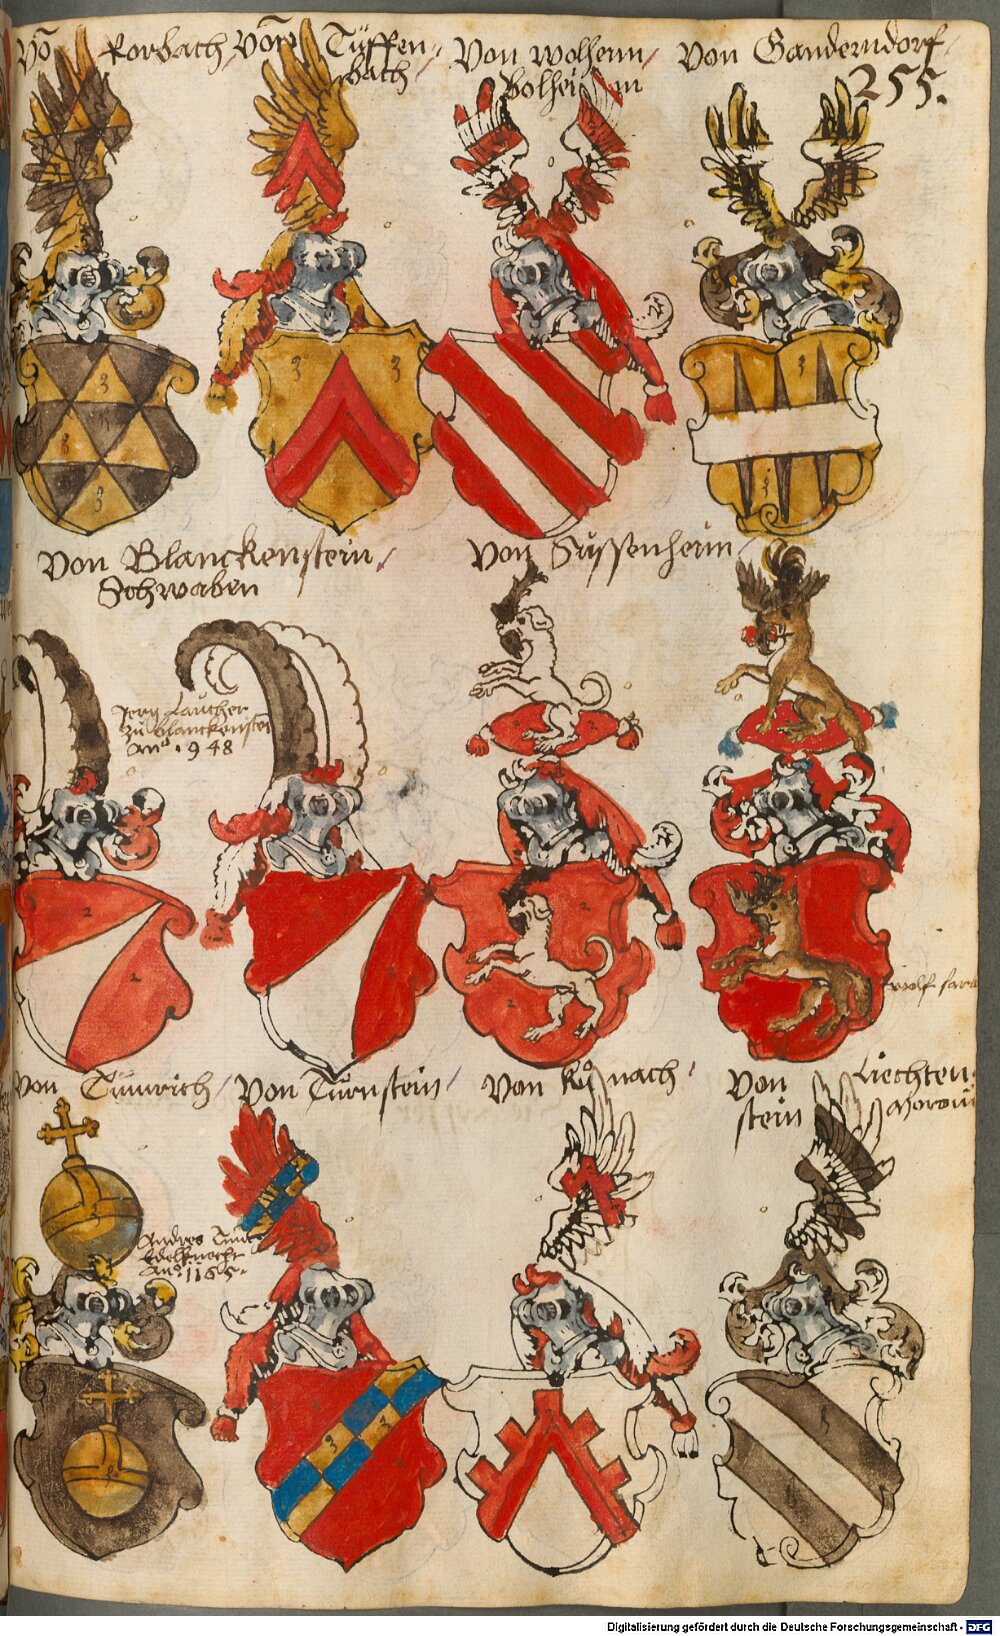 Von Rorbach / Von Tüffen
bach /
Von wolhenn /
Bolhei m
Von Ganderndorf /
255.
Von Blanckenstein /
Schwaben
Von Süssenheim /
Jerg Laucher
zu Blanckenstein
Anno 1948
wolf
Von Tumrich / Von Turnstein / Von Kuonach / Von Liechten
stein
Andres
Edelknecht
Ano. 1165.
Digitalisierung gefördert durch die Deutsche Forschungsgemeinschaft - DFG